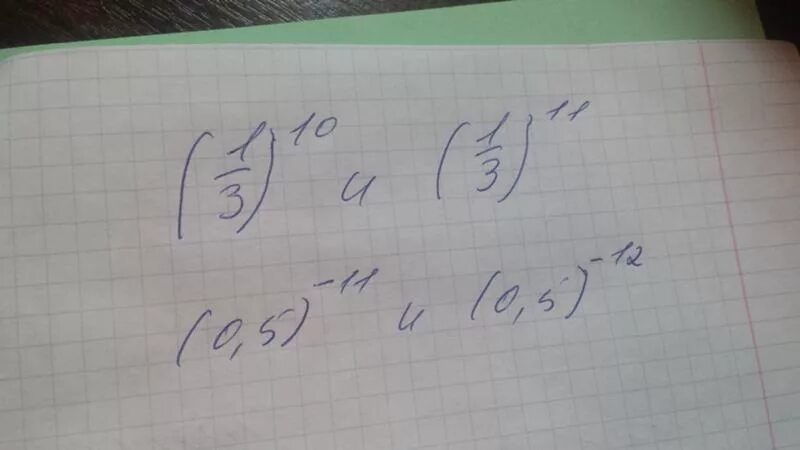 (1/3)^10 и (1/3)^11
(0,5)^-11 и (0,5)^-12